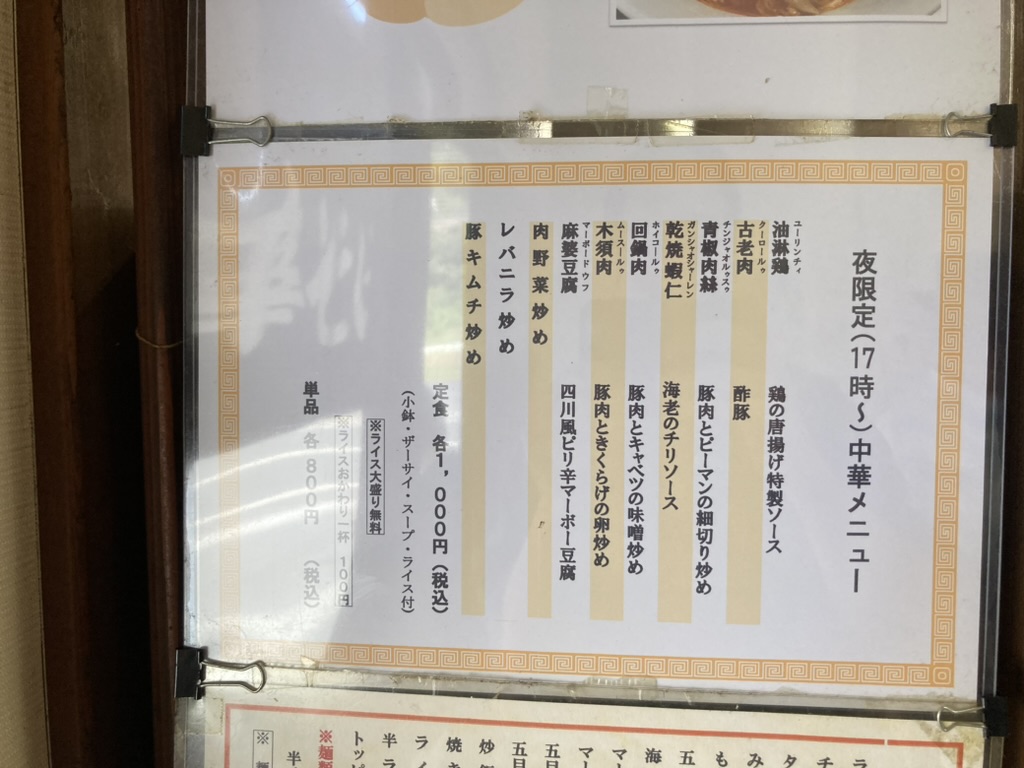 夜限定(17時~)中華メニュー
ユーリンチィ
油淋鶏 鶏の唐揚げ特製ソース
クーロールゥ
古老肉 酢豚
チンジャオルゥスゥ
青椒肉絲 豚肉とピーマンの細切り炒め
ガンシャオシャーレン
乾焼蝦仁 海老のチリソース
ホイコールゥ
回鍋肉 豚肉とキャベツの味噌炒め
ムースールゥ
木須肉 豚肉ときくらげの卵炒め
マーボードウフ
麻婆豆腐 四川風ピリ辛マーボー豆腐
肉野菜炒め
レバニラ炒め
豚キムチ炒め
定食 各1,000円(税込)
(小鉢・ザーサイ・スープ・ライス付)
※ライス大盛り無料
※ライスおかわり一杯 100円
単品 各800円 (税込)
ラ
チ
タ
み
も
五
海
マ
マー
五目
五目
炒
焼き
ライ
半ラ
トッピ
※麺
半
※